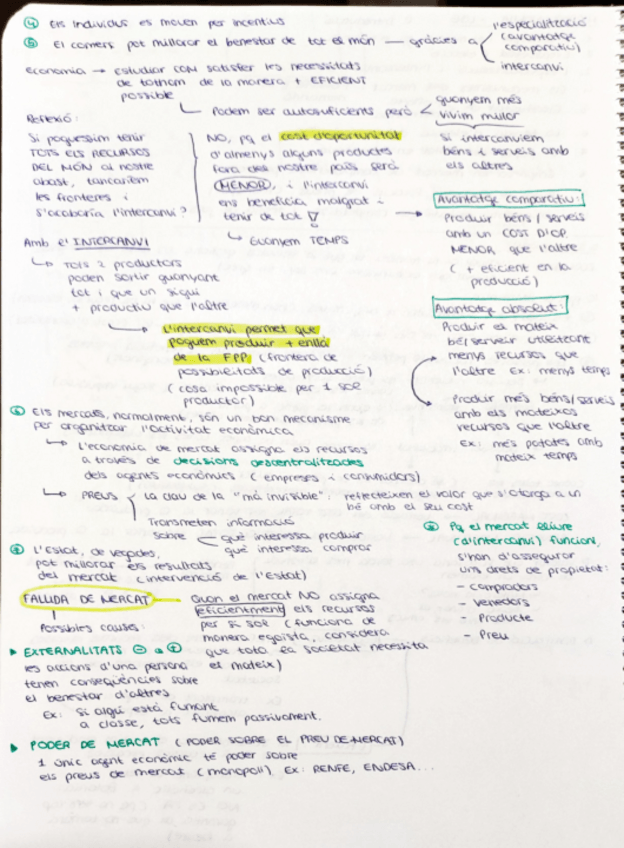 ④ Els individus es mouen per incentius
⑤ El comerç pot millorar el benestar de tot el món — gràcies a
l'especialització
(avantatge
comparatiu)
intercanvi
economia → estudiar COM satisfer les necessitats
de tothom de la manera + EFICIENT
possible
Podem ser autosuficients però
guanyem més
vivim millor
si intercanviem
béns i serveis amb
els altres
Reflexió:
Si poguessim tenir
TOTS ELS RECURSOS
DEL MÓN al nostre
abast, tancaríem
les fronteres i
s'acabaria l'intercanvi?
NO, pq el cost d'oportunitat
d'almenys alguns productes
fora del nostre país serà
MENOR, i l'intercanvi
ens beneficia malgrat
tenir de tot
↳ Guanyem TEMPS
Avantatge comparatiu:
Produir béns / serveis
amb un COST D'OP.
MENOR que l'altre
( + eficient en la
producció)
Amb el INTERCANVI
↳ TOTS 2 productors
poden sortir guanyant
tot i que un sigui
+ productiu que l'altre
L'intercanvi permet que
poguem produir + enllà
de la FPP (frontera de
possibilitats de producció)
(cosa impossible per 1 sol
productor)
Avantatge absolut:
Produir el mateix
bé/servei utilitzant
menys recursos que
l'altre Ex: menys temps
Produir més béns/serveis
amb els mateixos
recursos que l'altre
Ex: més patates amb
mateix temps
⑥ Els mercats, normalment, són un bon mecanisme
per organitzar l'activitat econòmica
↳ L'economia de mercat assigna els recursos
a través de decisions descentralitzades
dels agents econòmics (empreses i consumidors)
↳ PREUS
La clau de la "mà invisible": reflecteixen el valor que s'otorga a un
bé amb el seu cost
Transmeten informació
sobre
què interessa produir
què interessa comprar
Pq el mercat lliure
(d'intercanvi) funcioni,
s'han d'assegurar
uns drets de propietat:
- Compradors
- Venedors
- Producte
- Preu
⑦ L'Estat, de vegades,
pot millorar els resultats
del mercat (intervenció de l'Estat)
FALLIDA DE MERCAT
Quan el mercat NO assigna
eficientment els recursos
per si sol (funciona de
manera egoista, considera
que tota la societat necessita
el mateix)
Possibles causes:
▶ EXTERNALITATS ⊖ o ⊕
les accions d'una persona
tenen conseqüències sobre
el benestar d'altres
Ex: Si algú està fumant
a classe, tots fumem passivament.
▶ PODER DE MERCAT (PODER SOBRE EL PREU DE MERCAT)
1 únic agent econòmic té poder sobre
els preus de mercat (monopoli). Ex: RENFE, ENDESA...